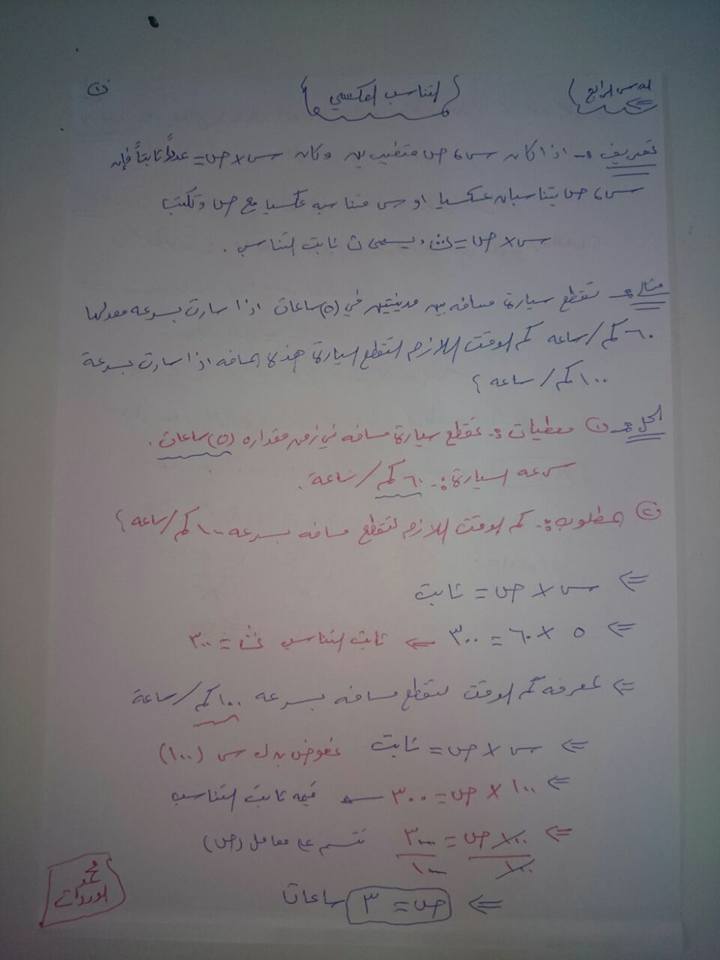 الدرس الرابع
التناسب العكسي
تعريف :- اذا كان س ، ص متغيرين وكان س × ص = عدداً ثابتاً فإن
س ، ص يتناسبان عكسيا او س متناسبه عكسيا مع ص وتكتب
س × ص = ث ويسمى ث ثابت التناسب .
مثال :- تقطع سيارة مسافه بين مدينتين في (٥) ساعات اذا سارت بسرعه معدلها
٦٠ كم/ساعه كم الوقت اللازم لتقطع السيارة هذه المسافه اذا سارت بسرعة
١٠٠ كم/ساعه ؟
الحل :- ① معطيات :- تقطع سيارة مسافه في زمن مقداره (٥) ساعات .
سرعه السيارة :- ٦٠ كم/ساعة .
② المطلوب :- كم الوقت اللازم لتقطع مسافه بسرعه ١٠٠ كم/ساعه ؟
⇐ س × ص = ثابت
⇐ ٥ × ٦٠ = ٣٠٠ ← ثابت التناسب ث = ٣٠٠
⇐ لمعرفه كم الوقت لتقطع مسافه بسرعه ١٠٠ كم/ساعة
⇐ س × ص = ثابت نعوض بدل س (١٠٠)
⇐ ١٠٠ × ص = ٣٠٠ ← قيمه ثابت التناسب
⇐ ١٠٠ ص = ٣٠٠ نقسم على معامل (ص)
١٠٠ ١٠٠
⇐ ص = ٣ ساعات
محمد